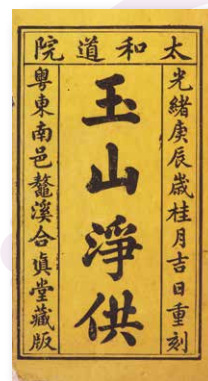 太和道院
光緒庚辰歲桂月吉日重刻
玉山淨供
粵東南邑鼇溪合真堂藏版